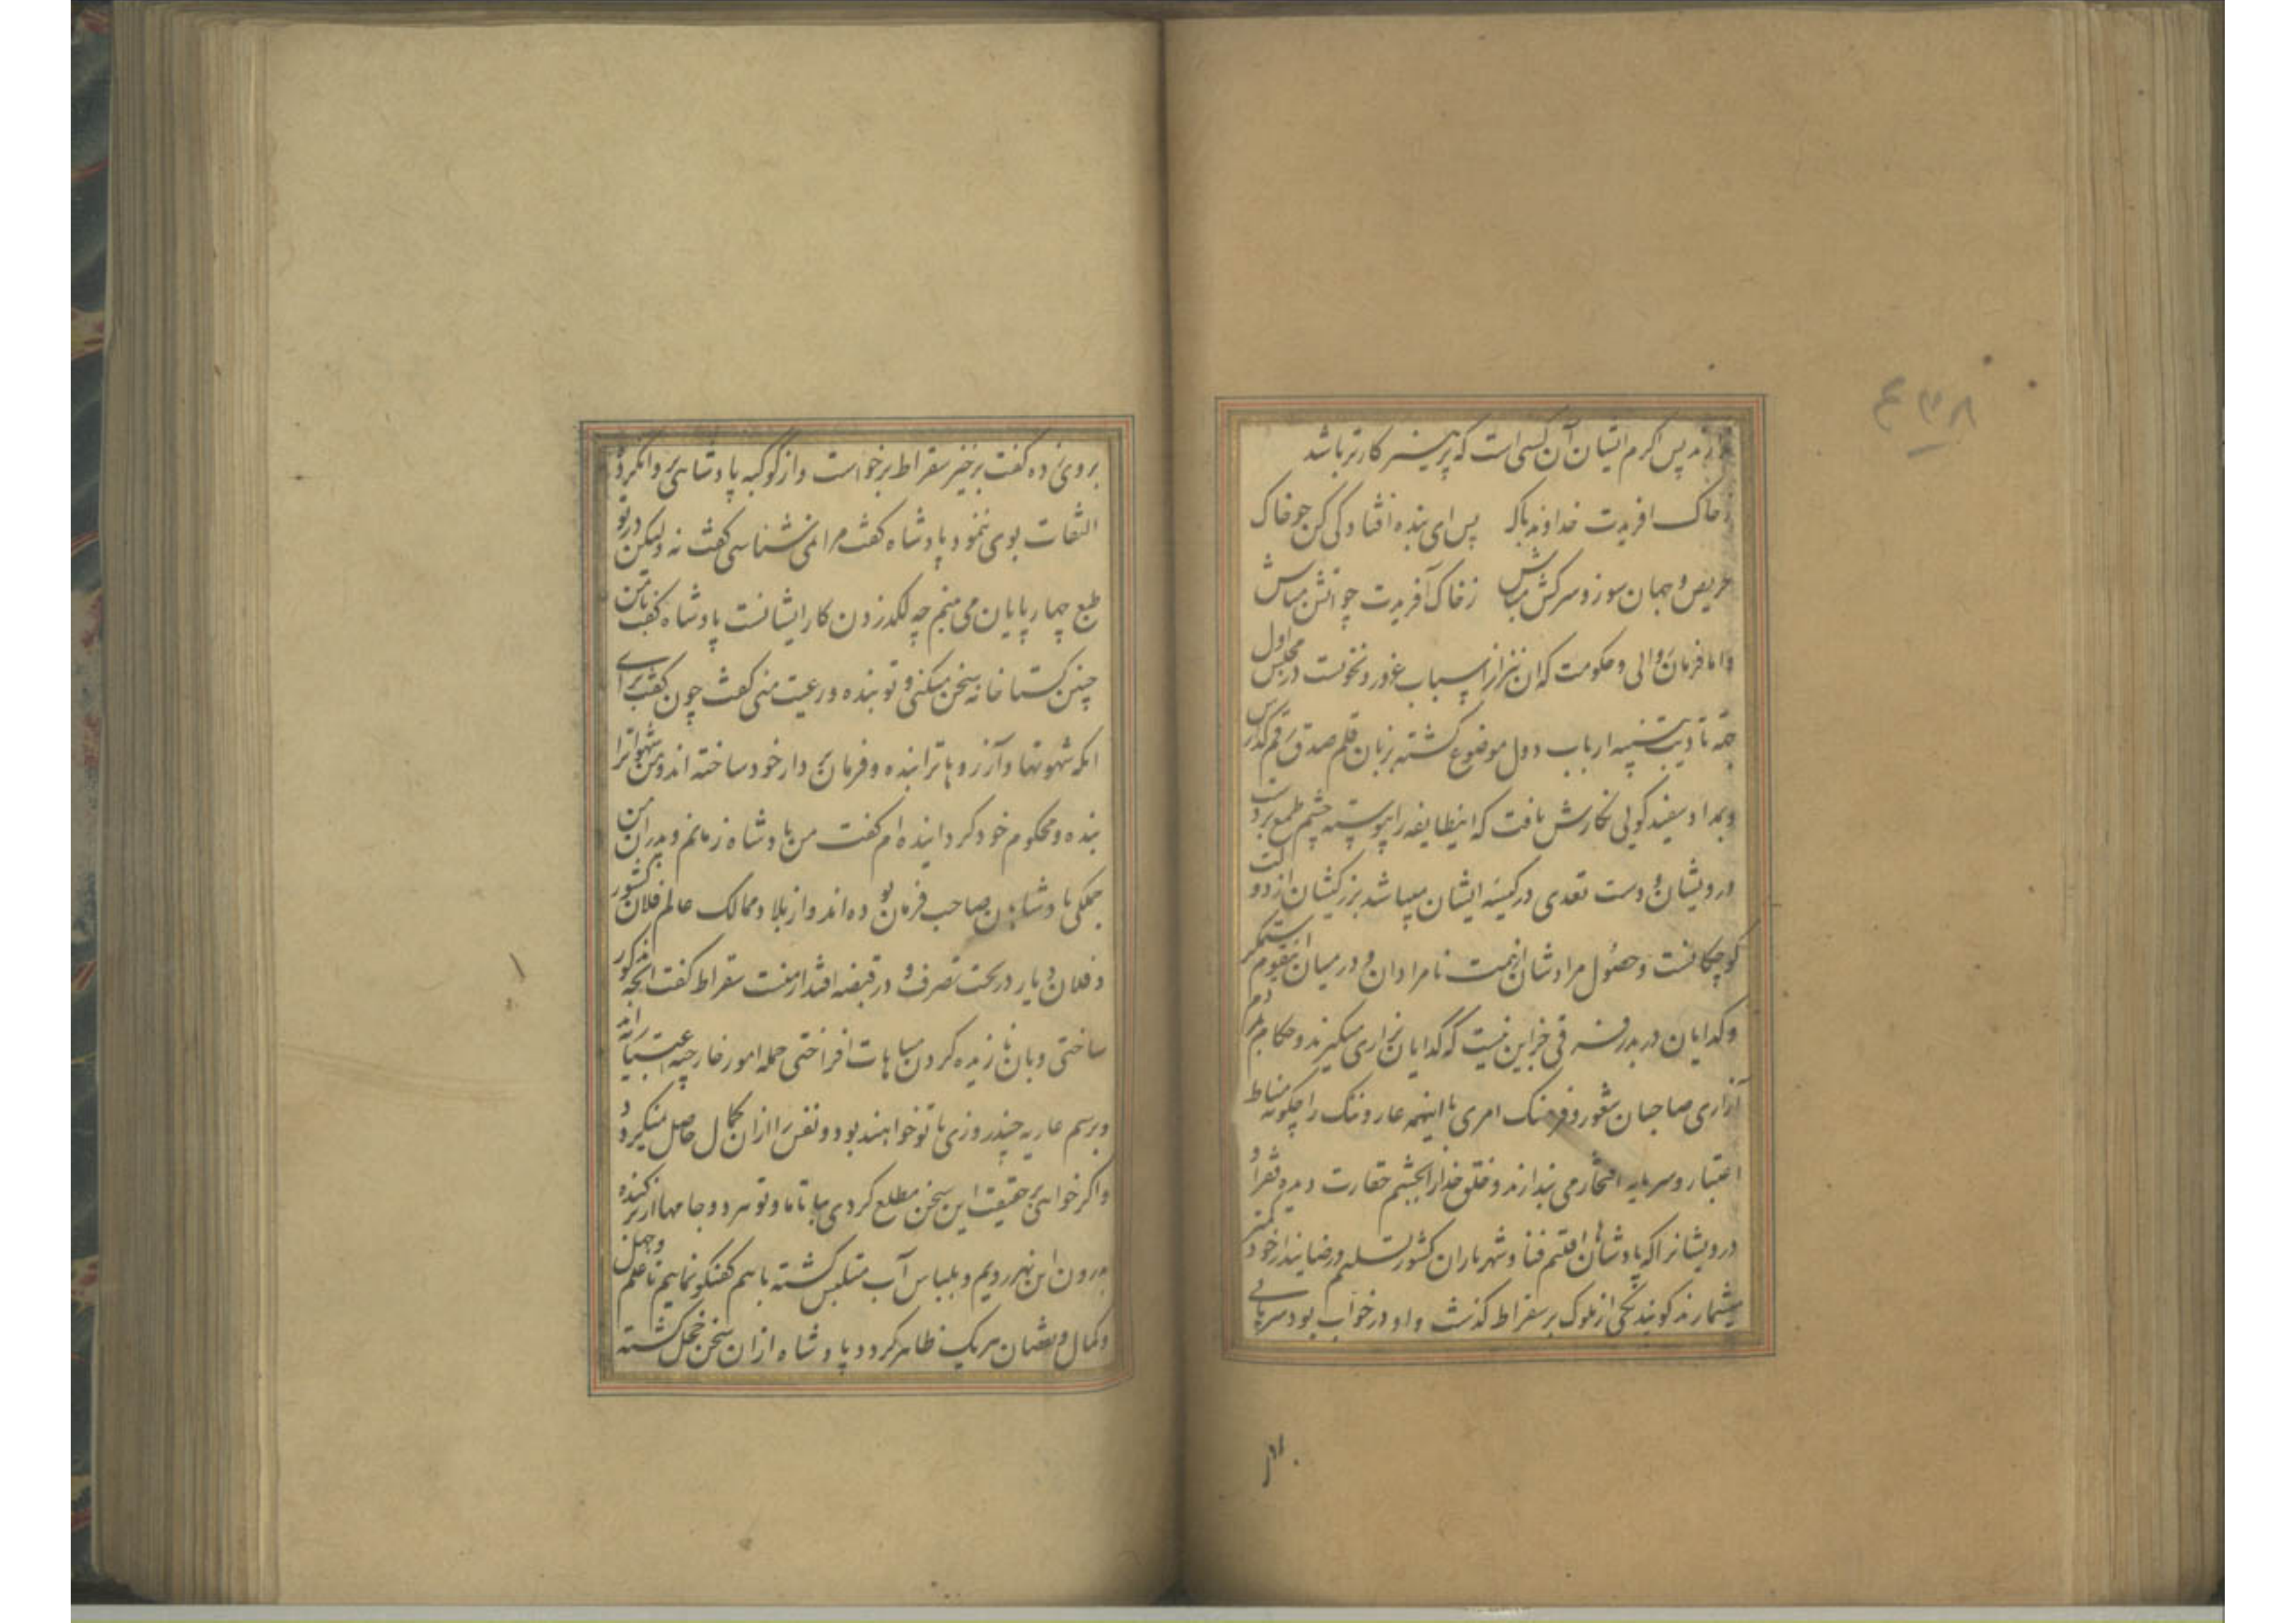 دارند پس اکرم ایشان آن کسی است که پرهیزکارتر باشد
زخاک افریدت خداوند پاک پس ای بنده افتادگی کن چو خاک
حریص و جهان سوز و سرکش مباش زخاک آفریدت چو اتش مباش
و اما فرمان روایی و حکومت که ان نیز از اسباب غرور و نخوتست در مجلس اول
جهة تادیب و تنبیه ارباب دول موضوع کشته بزبان قلم صدق رقم گذارش
و بمداد سفید کویی نکارش یافت که اینطایفه را پیوسته چشم طمع بر دست
درویشان و دست تعدی در کیسه ایشان میباشد بزرکیشان از دولت
کوچکانست و حصول مرادشان از همت نامرادان و در میان اینقوم ستمکر
و کدایان دربدر فرقی جز این نیست که کدایان بزاری میکیرند و حکام بمردم
آزاری صاحبان شعور و فرهنک امری با اینهمه عار و ننک را چکونه مناط
اعتبار و سرمایه افتخار می پندارند و خلق خدا را بچشم حقارت دیده فقرا و
درویشانرا که پادشاهان اقلیم فنا و شهریاران کشور تسلیم و رضایند از خود کمتر
میشمارند کویند یکی از ملوک بر سقراط کذشت و او در خواب بود سر پایی
۴۳۸
بروی زده گفت برخیز سقراط برخواست و از کوکبه پادشاهی پروا نکرد و
التفات بوی ننمود پادشاه کفت مرا نمی شناسی کفت نه ولیکن در تو
طبع چهارپایان می بینم چه لکد زدن کار ایشانست پادشاه کفت با من
چنین کستاخانه سخن میکنی و تو بنده و رعیت منی کفت چون کفت برای
انکه شهوتها و آرزوها ترا بنده و فرمان بردار خود ساخته اند و من شهواترا
بنده و محکوم خود کردانیده ام کفت من پادشاه زمانم و پدران من
جملکی پادشاهان صاحب فرمان بوده اند و از بلاد و ممالک عالم فلان کشور
و فلان دیار در تحت تصرف و در قبضه اقتدار منست سقراط کفت انچه مذکور
ساختی و بان نازیده کردن مباهات افراختی جمله امور خارجیه اعتباریه اند
و برسم عاریه چند روزی با تو خواهند بود و نفس را از ان کمال حاصل نمیکردد
و اکر خواهی بر حقیقت این سخن مطلع کردی بیا تا ما و تو هر دو جامها از بر کنده
درون این نهر رویم و بلباس آب متلبس کشته با هم کفتکو نماییم تا علم و جهل
و کمال و نقصان هر یک ظاهر کردد پادشاه از ان سخن خجل کشته